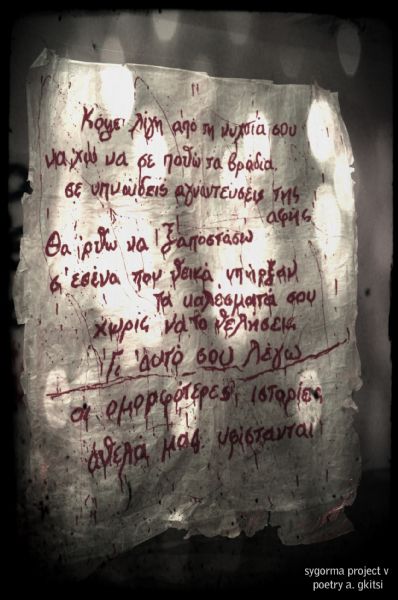 λίγη από τη νυχτιά σου
να χω να σε ποθώ τα βράδια.
σε υπνώδεις αγναντεύσεις της
αφής
Θα ρθω να ξαποστάσω
σ' εσένα που θεικά υπήρξαν
τα καλέσματά σου
χωρίς να το θελήσεις
Γι' αυτό σου λέγω
οι ομορφότερες ιστορίες
άθελά μας υφίστανται
sygorma project v
poetry a. gkitsi